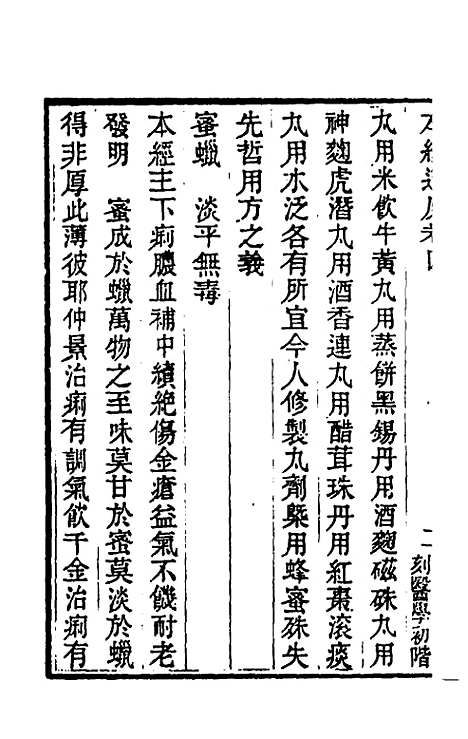 本經逢原卷四
二
刻醫學初階
丸用米飲牛黃丸用蒸餅黑錫丹用酒麴磁硃丸用
神麴虎潛丸用酒香連丸用醋茸珠丹用紅棗滾痰
丸用水泛各有所宜今人修製丸劑槩用蜂蜜殊失
先哲用方之義
蜜蠟　淡平無毒
本經主下痢膿血補中續絶傷金瘡益氣不饑耐老
發明　蜜成於蠟萬物之至味莫甘於蜜莫淡於蠟
得非厚此薄彼耶仲景治痢有調氣飲千金治痢有